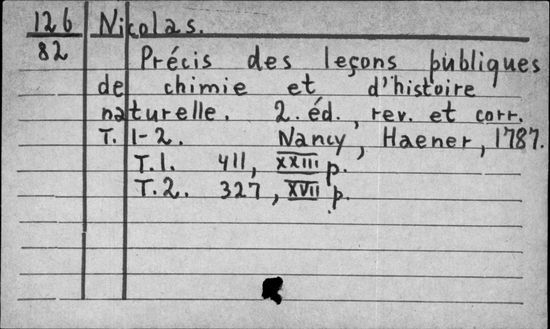 126 Nicolas.
82
Précis des leçons publiques
de chimie et d'histoire
naturelle. 2. éd., rev. et corr.
T. 1-2. Nancy, Haener, 1787.
T.1. 411, XXIII p.
T.2. 327, XVII p.